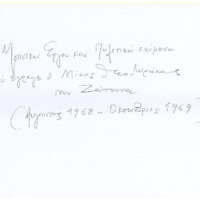 Μουσικό Έργο και Πολιτικά κείμενα
που έγραψε ο Μίκης Θεοδωράκης
στη Ζάτουνα
(Αύγουστος 1968 - Οκτώβριος 1969)